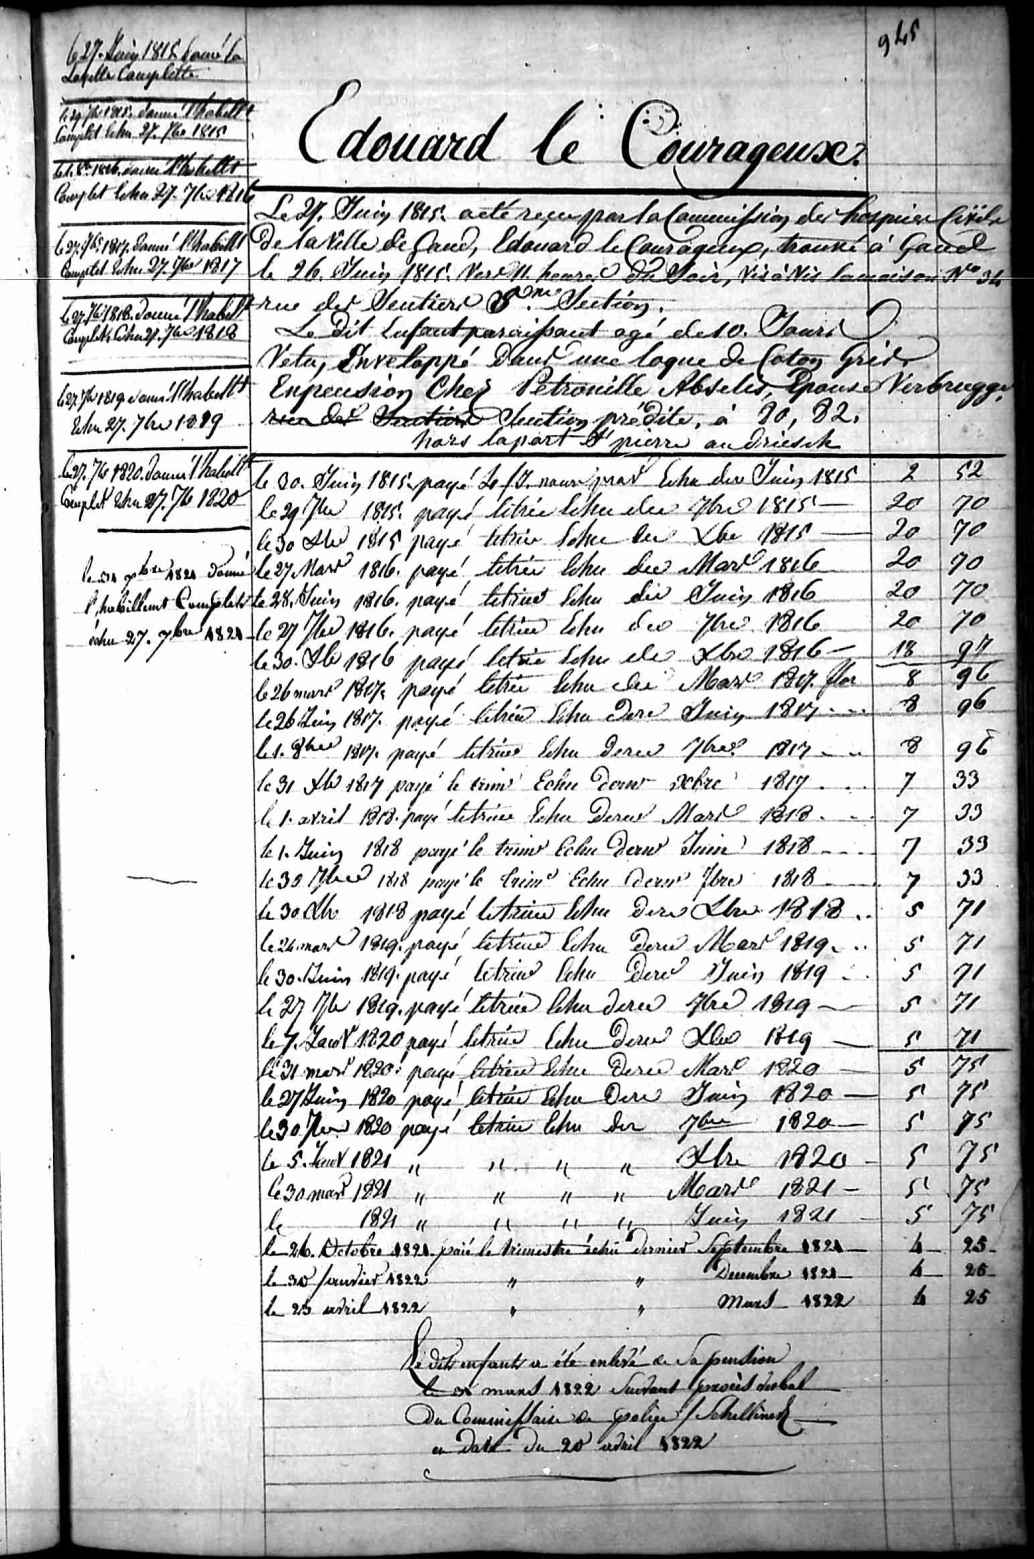 945
le 27. Juin 1815. donné la
Layette Complette
le 29. 7bre 1815. donné l'habillt
Complet Echu 27. 7bre 1815
donné l'habillt
Complet Echu 27. 7bre 1816
le 27. 7bre 1817. donné l'habillt
Complet Echu 27. 7bre 1817
le 27. 7bre 1818. donné l'habillt
Complet Echu 27. 7bre 1818
le 27. 7bre 1819 donné l'habillt
Echu 27. 7bre 1819
le 27. 7bre 1820. donné l'habillt
Complet Echu 27. 7bre 1820
7bre 1821 donné
l'habillement Complet
échu 27. 7bre 1821
Edouard le Courageux.
Le 27. Juin 1815. acté reçu par la Commission des hospices Civils
de la Ville de Gand, Edouard le Courageux, trouvé à Gand
le 26. Juin 1815. Vers 11. heures du Soir, Vis à Vis la maison No 34
rue des Sentiers Section.
Le dit Enfant paraissant agé de 10. Jours
Vetu, Enveloppé Dans une loque de Coton Gris
Enpension Chez Petronille Abselis, Epouse Verbrugge,
rue des Section prédite, à 20, 82.
hors la port St pierre au driesch
le 30. Juin 1815. payé Echu der Juin 1815 2 52
le 29 7bre 1815. payé letrim Echu der 7bre 1815 20 70
le 30 Xbre 1815 payé letrim Echu der Xbre 1815 20 70
le 27 Mars 1816. payé letrim Echu der Mars 1816 20 70
le 28. Juin 1816. payé letrim Echu der Juin 1816 20 70
le 27 7bre 1816. payé letrim Echu der 7bre 1816 20 70
le 30. Xbre 1816 payé letrim Echu der Xbre 1816 18 97
le 26 mars 1817. payé letrim Echu der Mars 1817. flor 8 96
le 26 Juin 1817. payé letrim Echu dern Juin 1817 8 96
le 1. 8bre 1817. payé letrim Echu dern 7bre 1817 8 96
le 31 Xbre 1817 payé le trimr Echu dernr Xbre 1817 7 33
le 1. avril 1818. payé letrim Echu dern Mars 1818 7 33
le 1. Juin 1818 payé le trimr Echu dernr Juin 1818 7 33
le 30 7bre 1818 payé le trimr Echu dernr 7bre 1818 7 33
le 30 Xbre 1818 payé letrim Echu dern Xbre 1818 5 71
le 24 mars 1819. payé letrim Echu dern Mars 1819 5 71
le 30. Juin 1819. payé letrim Echu dern Juin 1819 5 71
le 27 7bre 1819. payé letrim Echu dern 7bre 1819 5 71
le 7. Janvr 1820 payé letrim Echu dern Xbre 1819 5 71
le 31 mars 1820. payé letrim Echu dern Mars 1820 5 75
le 27 Juin 1820 payé letrim Echu dern Juin 1820 5 75
le 30 7bre 1820 payé letrim Echu der 7bre 1820 5 75
le 5. Janvr 1821 " " " " Xbre 1820 5 75
le 30 mars 1821 " " " " Mars 1821 5 75
le 1821 " " " " Juin 1821 5 75
le 26. Octobre 1821. paié le trimestre échu dernier Septembre 1821 4 25
le 30 Janvier 1822 " " Decembre 1821 4 25
le 25 avril 1822 " " Mars 1822 4 25
Le dits enfants a été enlevé de Sa pension
le mars 1822 Suivant procès verbal
Du Commissaire de police
en date du 20 avril 1822